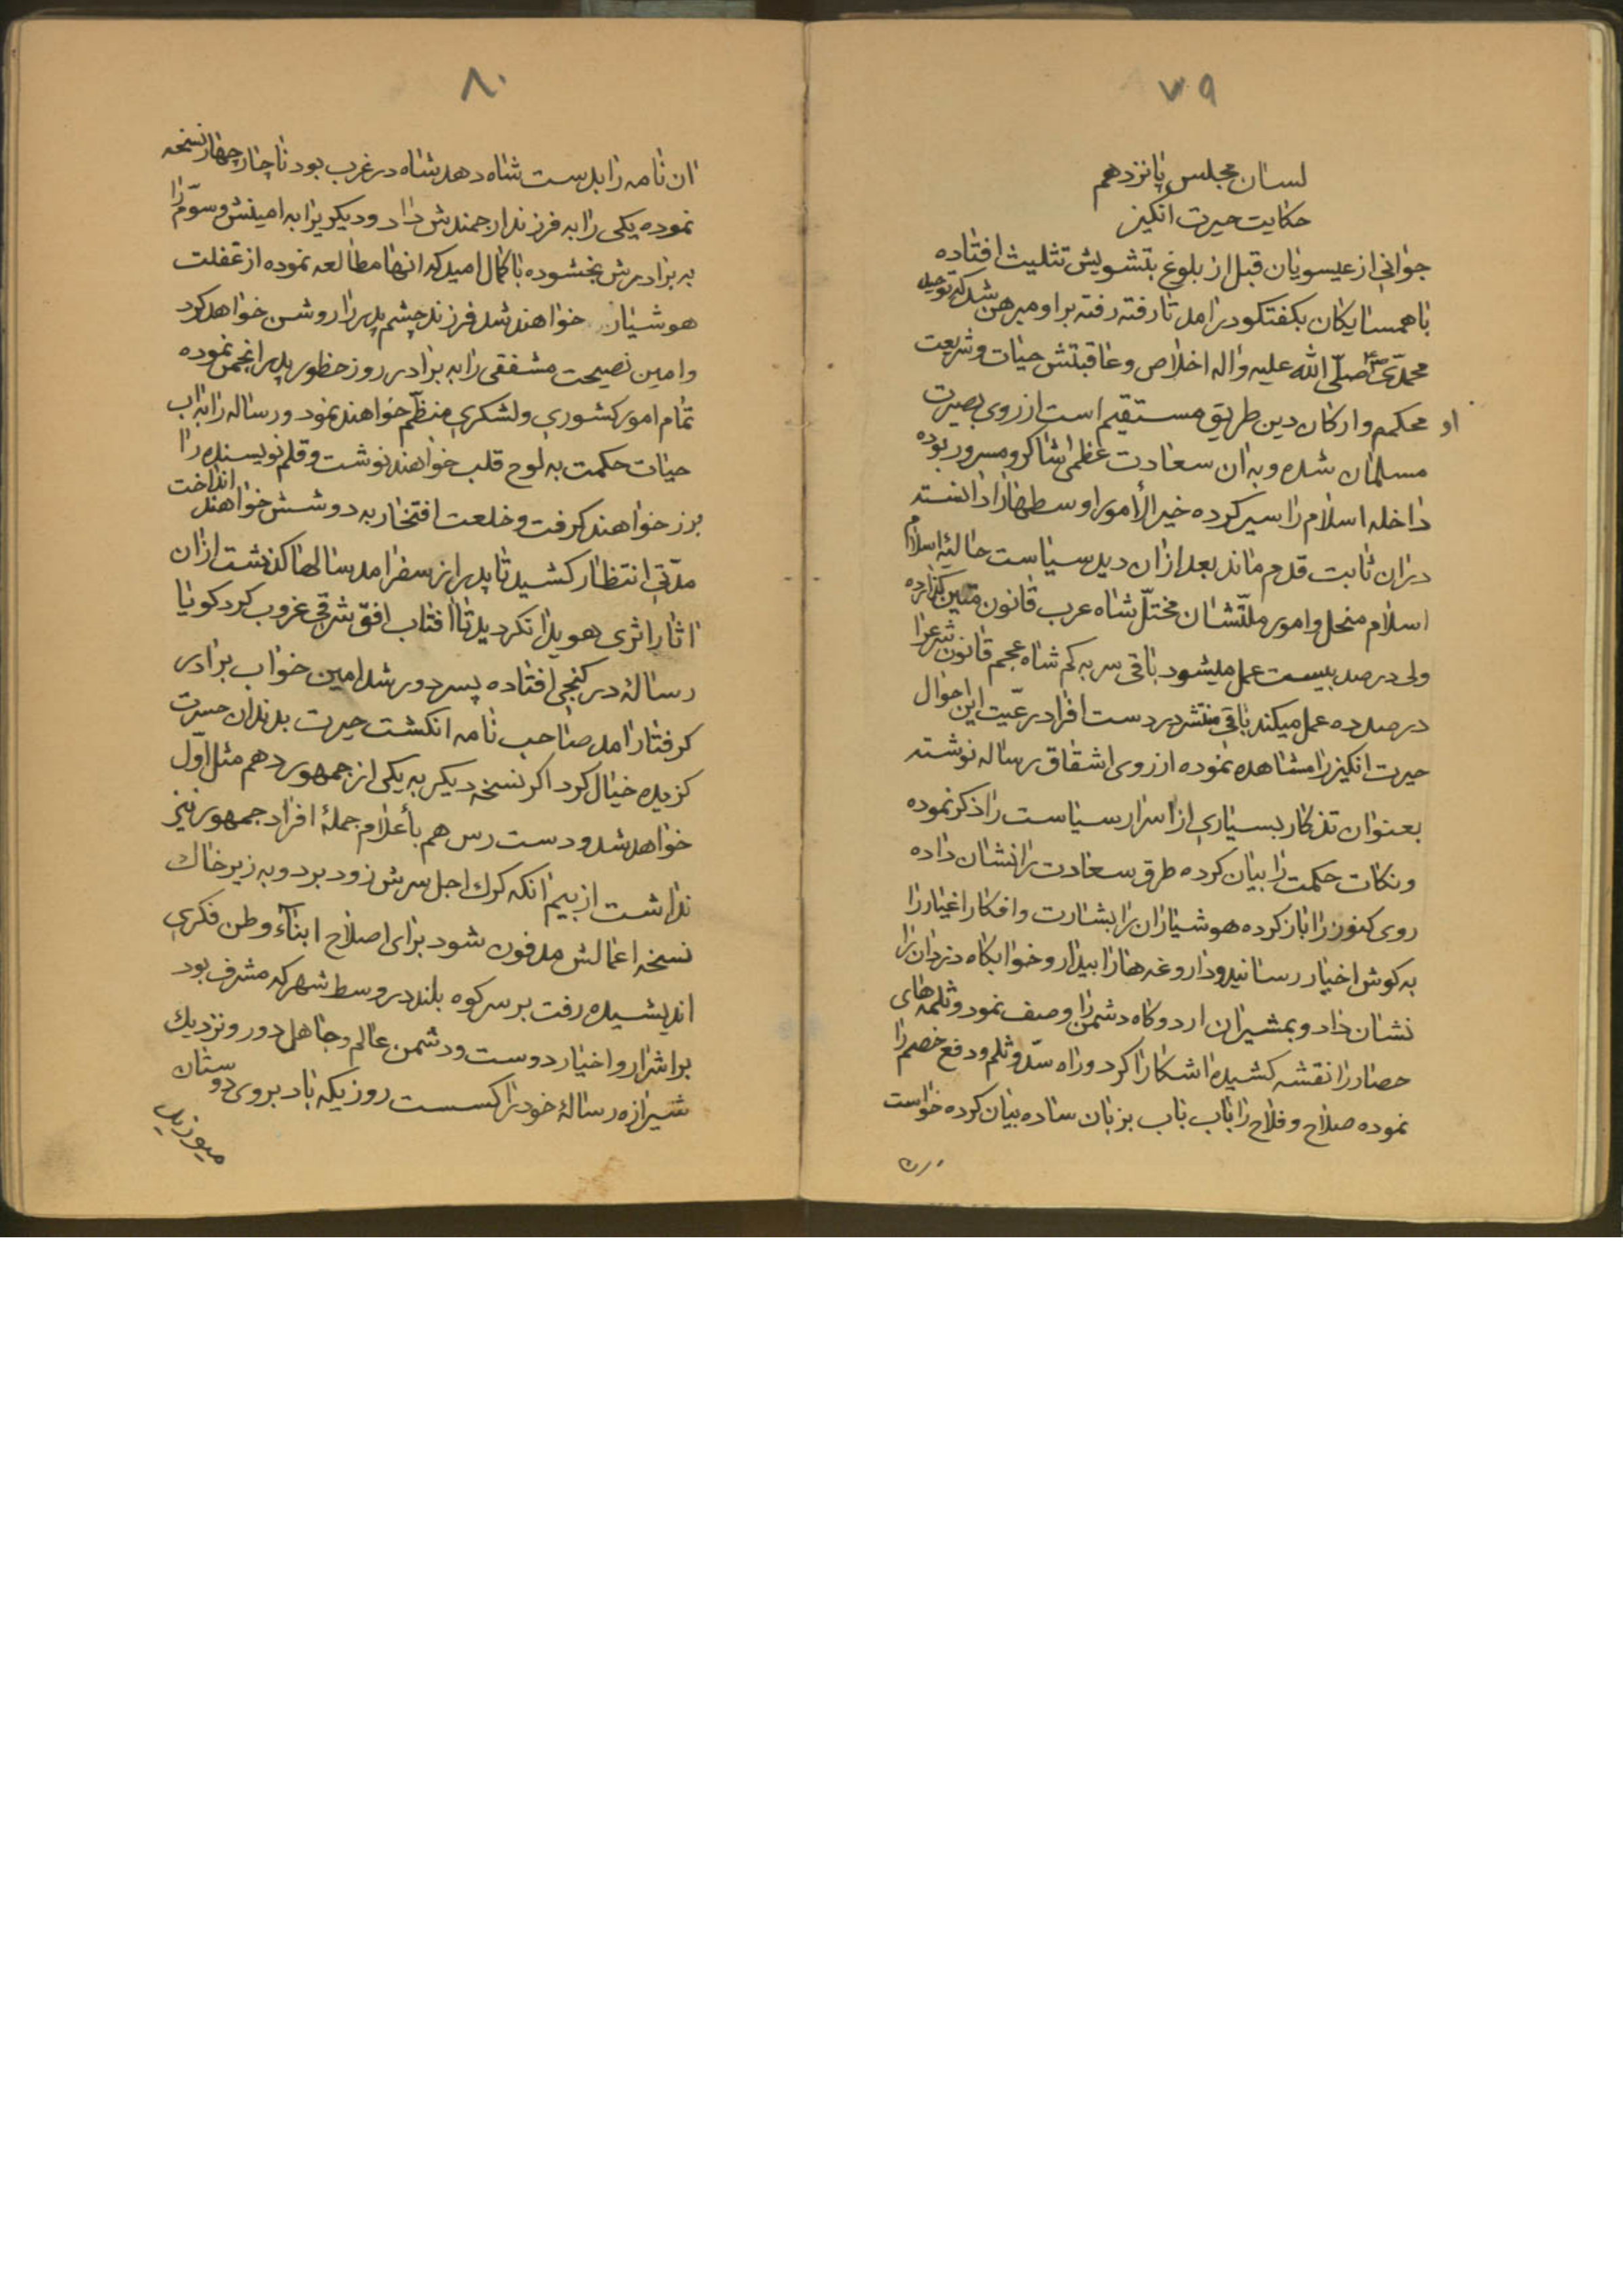 ۷۹
لسان مجلس پانزدهم
حکایت حیرت انکیز
جوانی از عیسویان قبل از بلوغ بتشویش تثلیث افتاده
باهمسایکان بکفتکو درامد تا رفته رفته براو مبرهن شد که توحید
محمدی صلّی الله علیه واله اخلاص وعاقبتش حیات وشریعت
او محکم وارکان دین طریق مستقیم است ازروی بصیرت
مسلمان شده وبه ان سعادت عظمی شاکر ومسرور بوده
داخله اسلام را سیر کرده خیر الأمور اوسطها را دانسته
دران ثابت قدم ماند بعد ازان دید سیاست حالیۀ اسلام
اسلام منحل وامور ملتّشان مختلّ شاه عرب قانون متین کذارده
ولی درصد بیست عمل میشود باقی سر به کم شاه عجم قانون شرعرا
درصد ده عمل میکند باقی منتشر در دست افراد رعّیت این احوال
حیرت انکیز را مشاهده نموده ازروی اشفاق رساله نوشته
بعنوان تذکار بسیاری از اسرار سیاست را ذکر نموده
ونکات حکمت را بیان کرده طرق سعادت را نشان داده
روی کنوز را باز کرده هوشیاران را بشارت وافکار اغیار را
به کوش اخیار رسانید وداروغه ها را بیدار وخوابکاه دزدان را
نشان داد وبمشیران اردوکاه دشمن را وصف نمود وثلمه های
حصار را نقشه کشیده اشکارا کرد وراه سدّ وثلم ودفع خصم را
نموده صلاح وفلاح را باب باب بزبان ساده بیان کرده خواست
۸۰
ان نامه را بدست شاه دهد شاه در غرب بود ناچار چهار نسخه
نموده یکی را به فرزند ارجمندش داد ودیکریرا به امینش وسوّم را
به برادرش بخشوده با کمال امید که انها مطالعه نموده از غفلت
هوشیار خواهند شد فرزند چشم پدر را روشن خواهد کرد
وامین نصیحت مشفقی را به برادر روز حظور پدر انجمن نموده
تمام امور کشوری ولشکری منظّم خواهند نمود ورساله را به اب
حیات حکمت به لوح قلب خواهند نوشت وقلم نویسنده را
بزر خواهند کرفت وخلعت افتخار به دوشش خواهند انداخت
مدّتی انتظار کشید تا پدر از سفر امد سالها کذشت ازان
اثار اثری هویدا نکردید تا افتاب افق شرقی غروب کرد کویا
رسالۀ در کنجی افتاده پسر دور شد امین خواب برادر
کرفتار امد صاحب نامه انکشت حیرت بدندان حسرت
کزیده خیال کرد اکر نسخه دیکر به یکی از جمهور دهم مثل اوّل
خواهد شد ودست رس هم بأعلام جملۀ افراد جمهور نیز
نداشت از بیم انکه کرك اجل سرش زود برد وبه زیر خاك
نسخه اعمالش مدفون شود برای اصلاح ابنآء وطن فکری
اندیشیده رفت بر سر کوه بلند در وسط شهر که مشرف بود
بر اشرار واخیار دوست ودشمن عالم وجاهل دور ونزدیك
شیرازه رسالۀ خود را کسست روزیکه باد بروی دوستان
میوزید